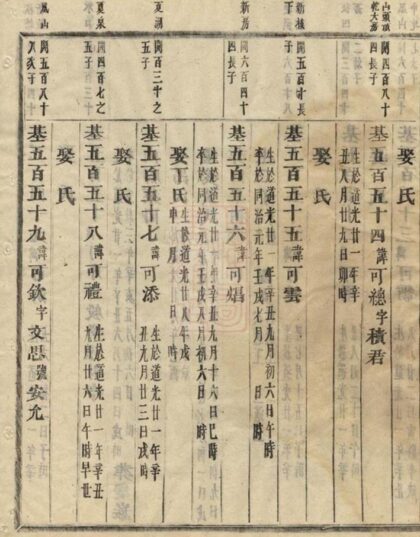 開四百八十
四長子
娶氏
基五百五十四諱可總字積君
生於道光廿一年辛
丑八月廿九日卯時
娶氏
開五百廿長
子
基五百五十五諱可雲
生於道光廿一年辛丑九月初六日午時
卒於同治元年壬戌七月 日 時
新房
開六百四十
四長子
基五百五十六諱可焻
生於道光廿一年辛丑九月十六日巳時
卒於同治元年壬戌八月初六日 時
娶丁氏
生於道光廿八年戊
申 月 日 時
夏湖
開百三十之
五子
基五百五十七諱可添
生於道光廿一年辛
丑九月廿三日戌時
娶氏
夏泉
開四百七之
四子
基五百五十八諱可禮
生於道光廿一年辛丑
九月廿六日午時早世
娶氏
鳳山
開四百八十
八次子
基五百五十九諱可欽字文思號安允